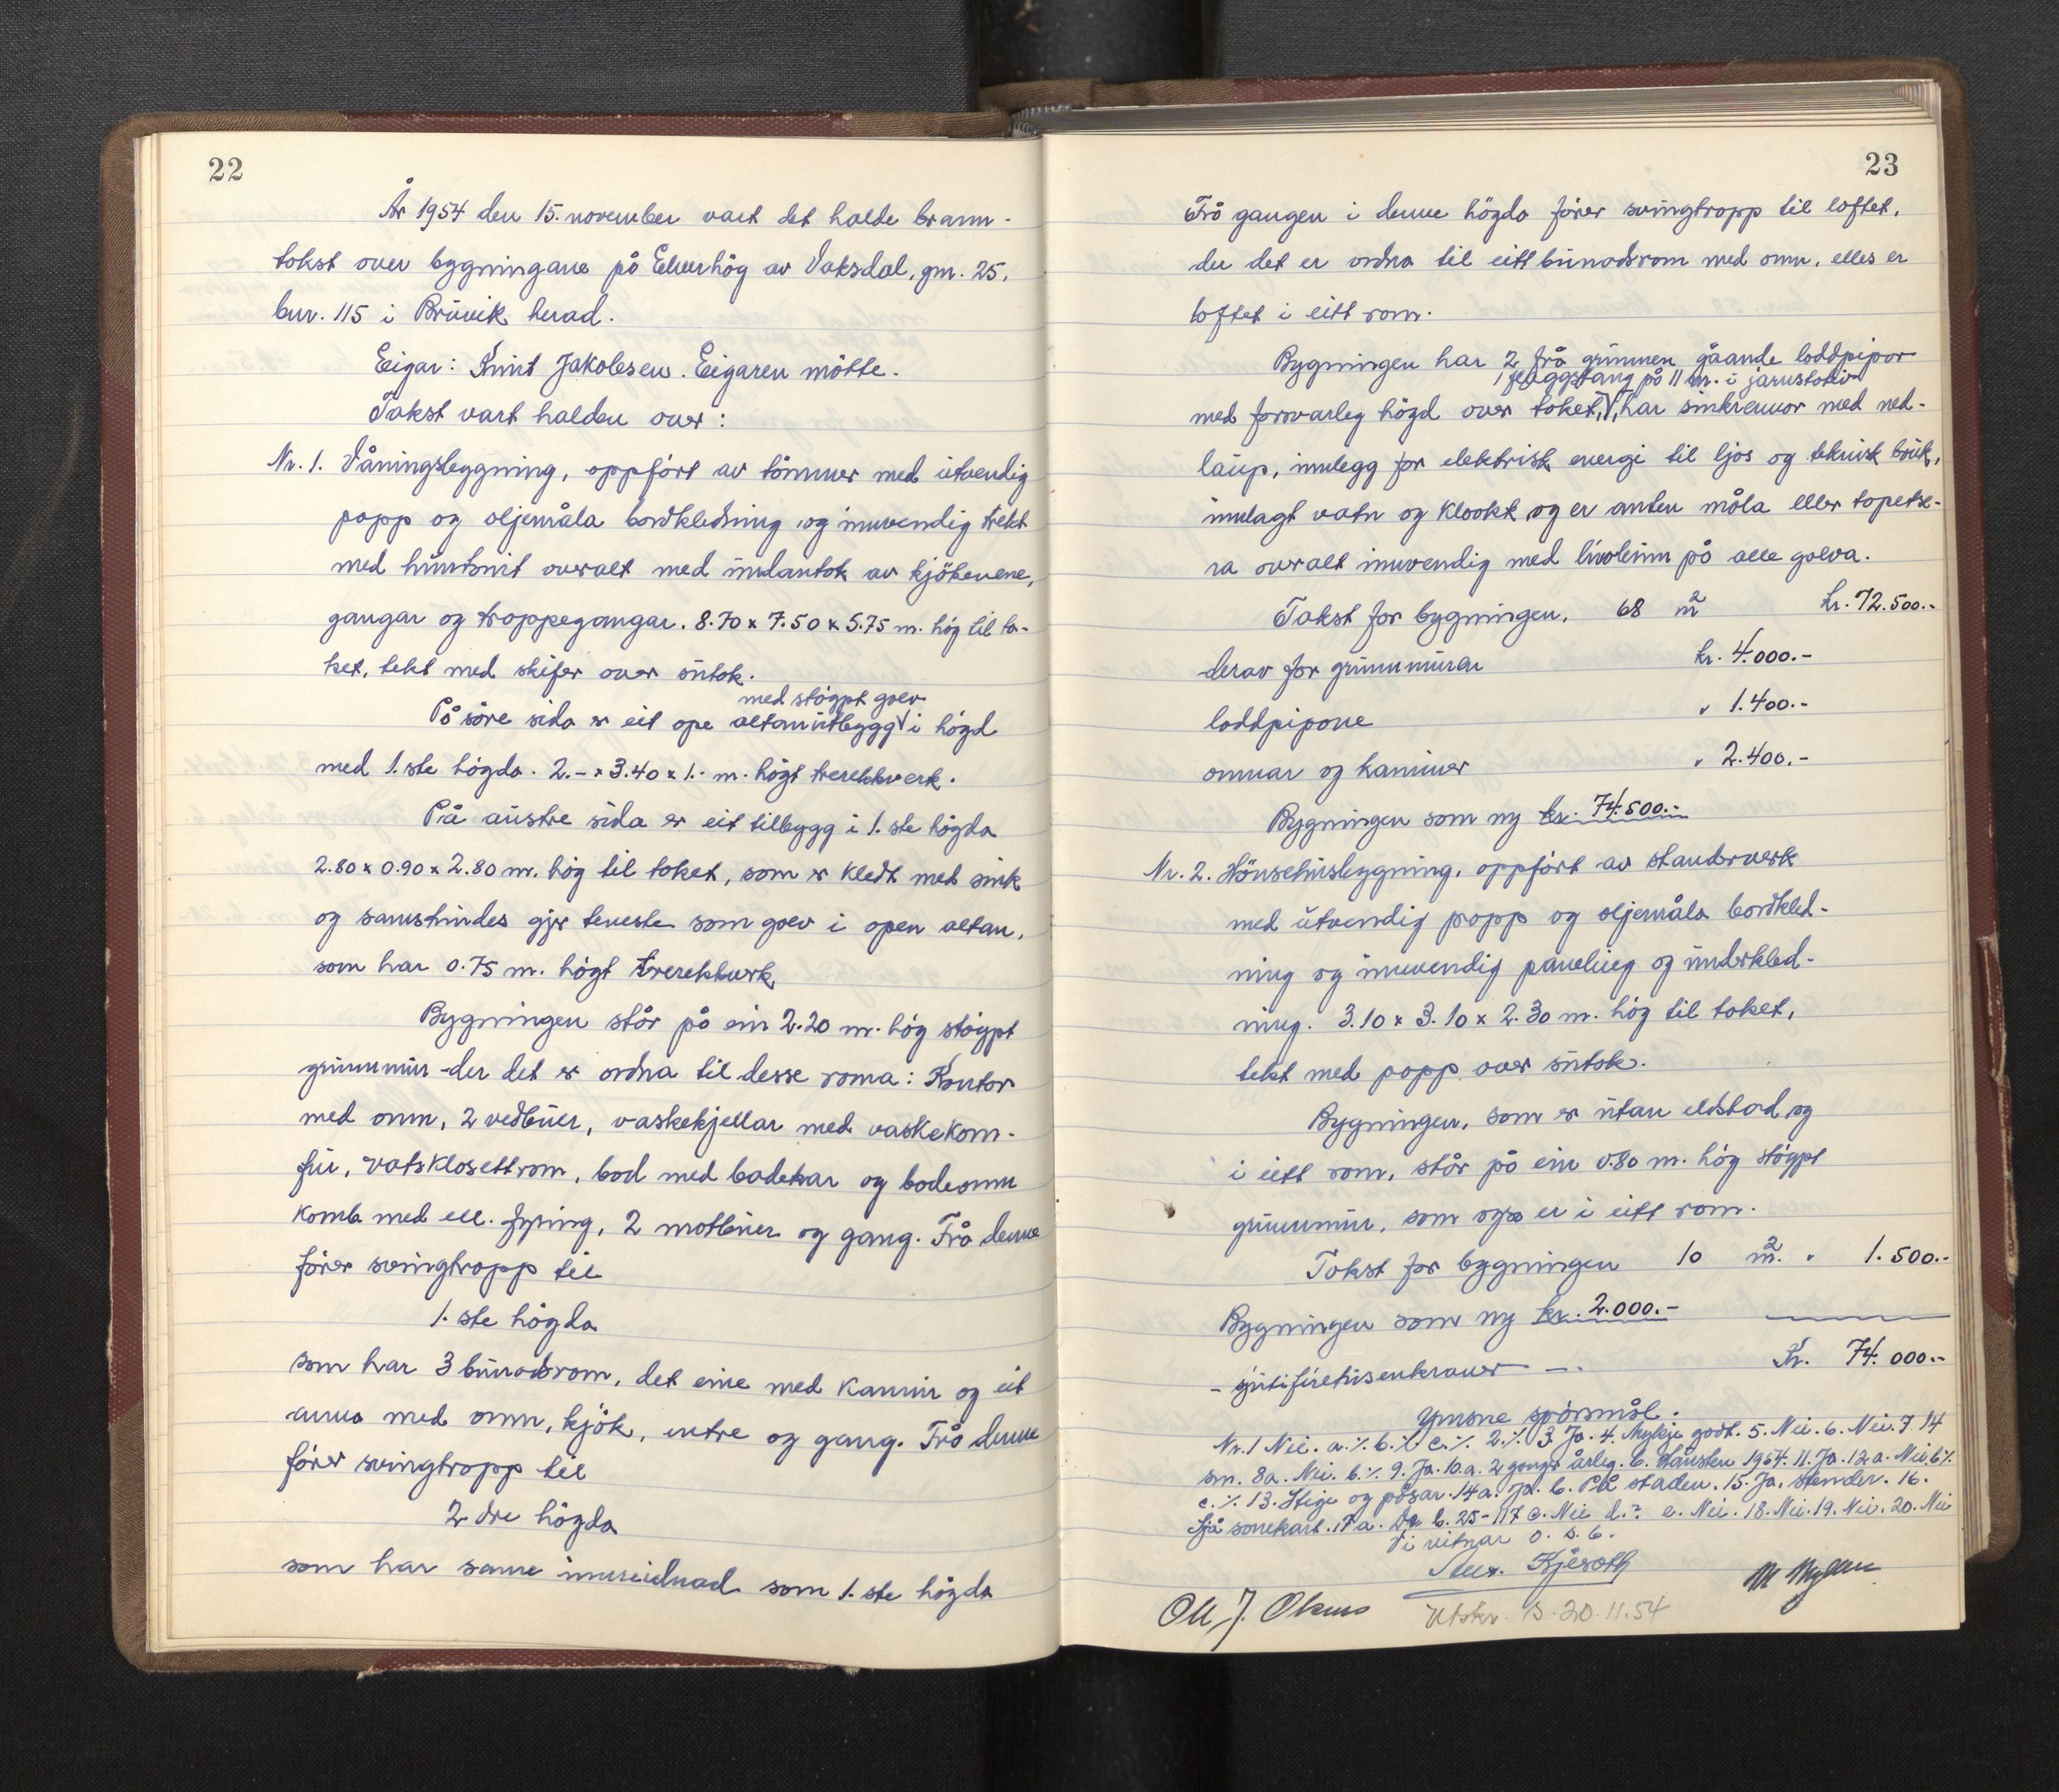 22
År 1954 den 15. november vart det halde brann-
takst over bygningane på Elverhøg av Vaksdal, gnr. 25,
bnr. 115 i Bruvik herad.
Eigar: Knut Jakobsen. Eigaren møtte.
Takst vart halden over:
Nr. 1. Våningsbygning, oppført av tømmer med utvendig
papp og oljemåla bordkledning og innvendig trekt
med huntonit overalt med undantak av kjøkenene,
gangar og trappegangar. 8.70 x 7.50 x 5.75 m. høg til ta-
ket, tekt med skifer over sutak.
med støypt golv
På søre sida er eit ope altanutbygg V i høgd
med 1.ste høgda. 2.- x 3.40 x 1.- m. høgt trerekkverk.
På austre sida er eit tilbygg i 1.ste høgda
2.80 x 0.90 x 2.80 m. høg til taket, som er kledt med sink
og samstundes gjer teneste som golv i open altan,
som har 0.75 m. høgt trerekkverk
Bygningen står på ein 2.20 m. høg støypt
grunnmur - der det er ordna til desse roma: Kontor
med omn, 2 vedbuer, vaskekjellar med vaskekom-
fur, vatsklosettrom, bad med badekar og badeomn
komb med ell. fyring, 2 matbuer og gang. Frå denne
fører svingtrapp til
1. ste høgda
som har 3 bunadsrom, det eine med kamin og eit
anna med omn, kjøk, entre og gang. Frå denne
fører svingtrapp til
2 dre høgda
som har same innreidnad som 1. ste høgda
23
Frå gangen i denne høgda fører svingtrapp til loftet,
der det er ordna til eitt bunadsrom med omn, elles er
loftet i eitt rom.
Bygningen har 2 frå grunnen gåande loddpipor
1 flaggstang på 11 m. i jarnstativ
med forsvarleg høgd over taket, V, har sinkrennor med ned-
laup, innlegg for elektrisk energi til ljos og teknisk bruk,
innlagt vatn og kloakk og er anten måla eller tapetse-
ra overalt innvendig med linoleum på alle golva.
Takst for bygningen. 68 m2 kr. 72.500.-
derav for grunnmuren kr. 4.000.-
loddpipone " 1.400.-
omnar og kaminer " 2.400.-
Bygningen som ny kr. 74.500.-
Nr. 2. Hønsehusbygning, oppført av standerverk
med utvendig papp og oljemåla bordkled-
ning og innvendig paneling og underkled-
ning. 3.10 x 3.10 x 2.30 m. høg til taket,
tekt med papp over sutak.
Bygningen, som er utan eldstad og
i eitt rom, står på ein 0.80 m. høg støypt
grunnmur, som også er i eitt rom.
Takst for bygningen 10 m2. " 1.500.-
Bygningen som ny kr. 2.000.-
- sjutifiretusenkroner - Kr. 74.000.-
Ymsne spørsmål.
Nr. 1 Nei. a. % b. % c. % 2. % 3. Ja. 4. Mykje godt. 5. Nei. 6. Nei. 7. 14
sm. 8a. Nei. b. % 9. Ja. 10. a. 2 gonger årleg. b. Hausten 1954. 11. Ja. 12 a. Nei. b %
c. % 13. Stige og pøsar. 14 a. Ja. b. På staden. 15. Ja, stender. 16.
Sjå sonekart. 17 a. Ja b. 25-117 c. Nei d. ? e. Nei. 18. Nei. 19. Nei. 20. Nei
Vi vitnar o. s. b.
Utskr. B. 20.11.54